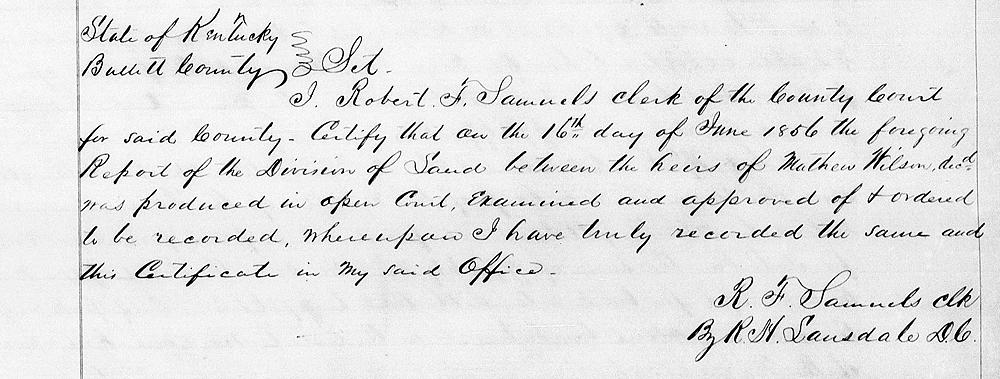 State of Kentucky
Bullett County } Sct.
I. Robert. F. Samuels clerk of the County Court
for said County - Certify that on the 16th day of June 1856 the foregoing
Report of the Division of Land between the heirs of Mathew Wilson, decd.
was produced in open Court, Examined and approved of & ordered
to be recorded, whereupon I have truly recorded the same and
this Certificate in my said Office -
R. F. Samuels clk
By R. H. Lansdale D.C.